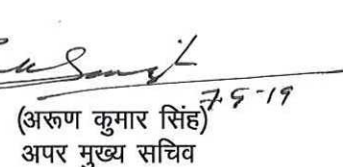 7-5-19
(अरूण कुमार सिंह)
अपर मुख्य सचिव